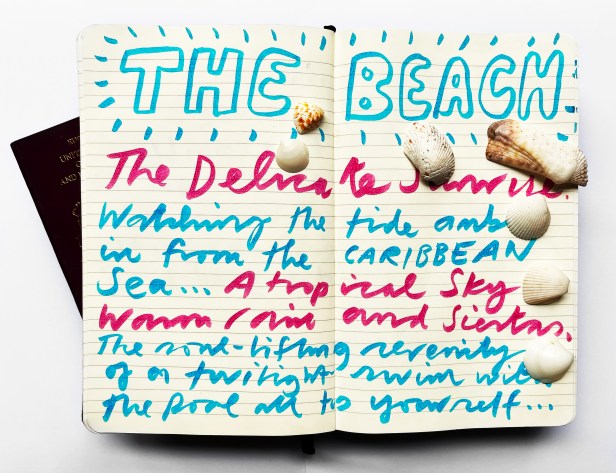 THE BEACH
The Delicate Sunrise.
Watching the tide amb
in from the CARIBBEAN
Sea... A tropical Sky
Warm rain and Siestas,
The soul-lifting serenity
of a twilight swim with
the pool all to yourself...